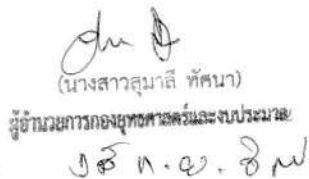 (นางสาวสุมาลี ทัศนา)
ผู้อำนวยการกองยุทธศาสตร์และงบประมาณ
ก.ย.